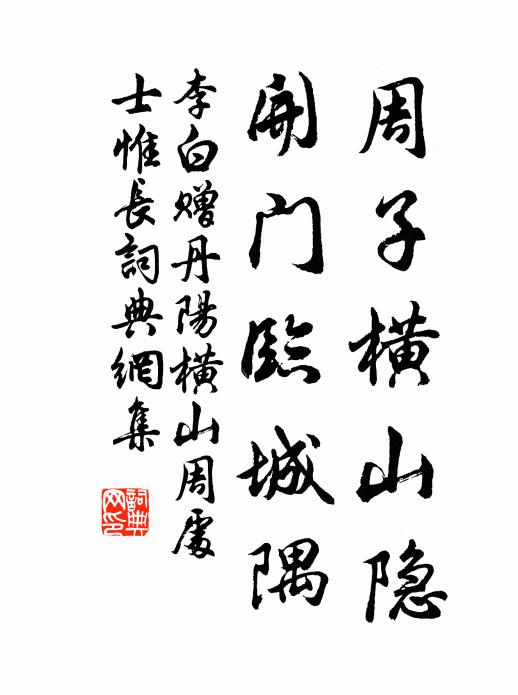 周子橫山隐
開門臨城隅
李白贈丹陽橫山周處
士惟長詞典網集
詞典
网印